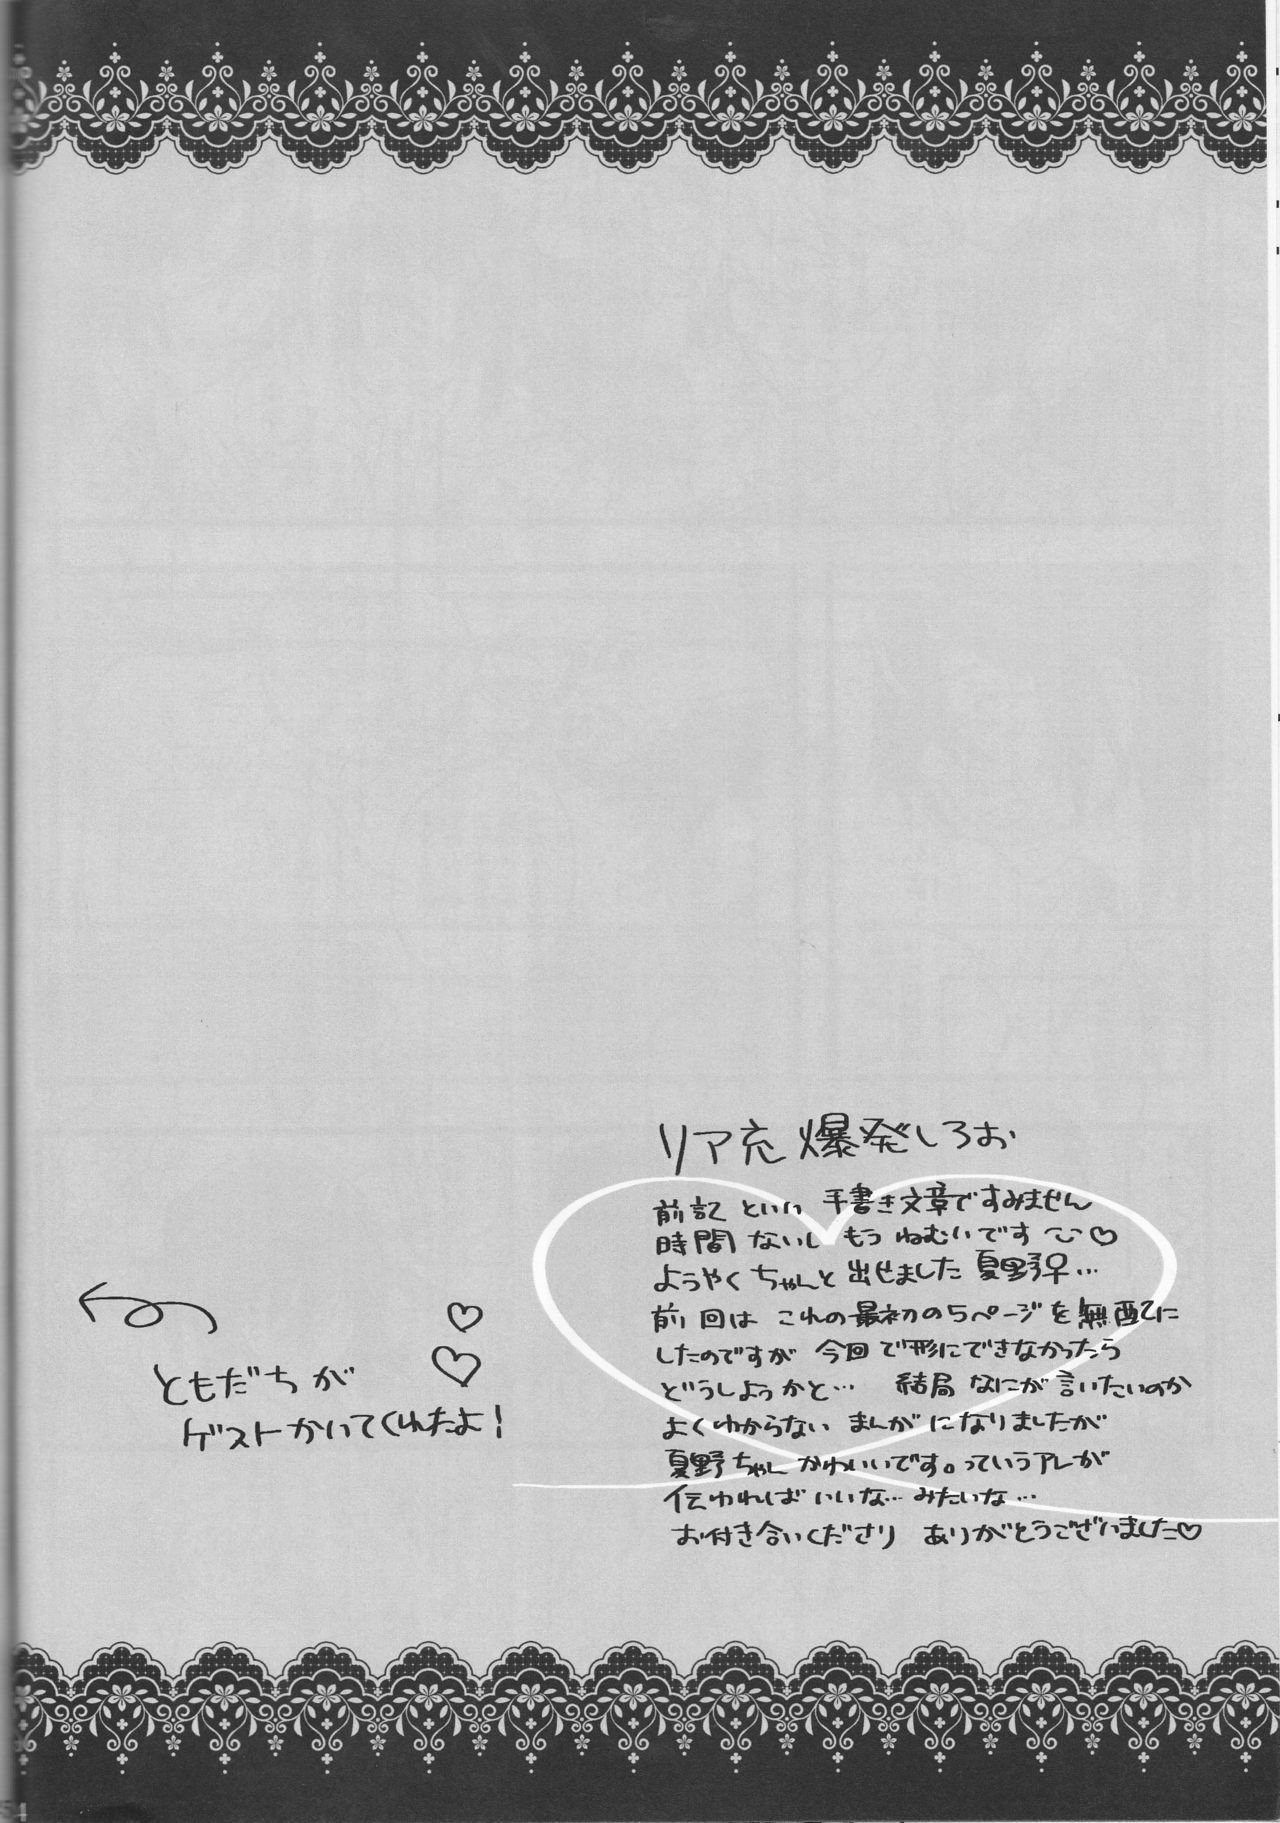 リア充 爆発しろお
前記 といい 手書き文章ですみません
時間 ないし もう ねむいです ♡
ようやく ちゃんと 出せました 夏野♀…
前回は これの最初の5ページを無配に
したのですが 今回で形にできなかったら
どうしようかと… 結局 なにが言いたいのか
よくわからない まんがになりましたが
夏野ちゃん かわいいです。っていうアレが
伝わればいいな… みたいな…
お付き合いくださり ありがとうございました♡
ともだちが
ゲストかいてくれたよ!
54